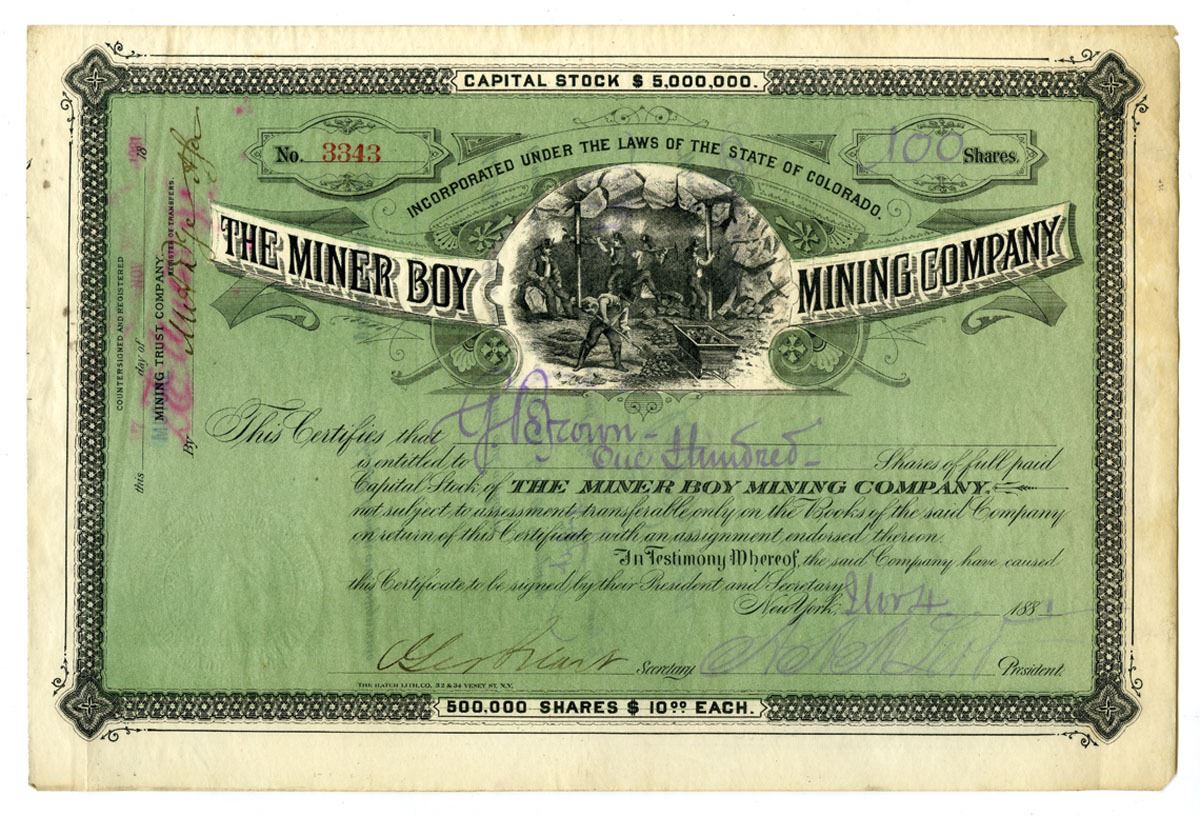 CAPITAL STOCK $ 5,000,000.
No. 3343
INCORPORATED UNDER THE LAWS OF THE STATE OF COLORADO.
100 Shares.
THE MINER BOY MINING COMPANY
This Certifies that J Brown
is entitled to One Hundred Shares of full paid
Capital Stock of THE MINER BOY MINING COMPANY,
not subject to assessment, transferable only on the Books of the said Company
on return of this Certificate with an assignment endorsed thereon.
In Testimony Whereof, the said Company have caused
this Certificate to be signed by their President and Secretary
New York, Nov 4 1881
Secretary President.
THE HATCH LITH. CO. 32 & 34 VESEY ST. N.Y.
500,000 SHARES $ 10.00 EACH.
COUNTERSIGNED AND REGISTERED
this 17 day of NOV 18
MINING TRUST COMPANY,
REGISTER OF TRANSFERS.
By